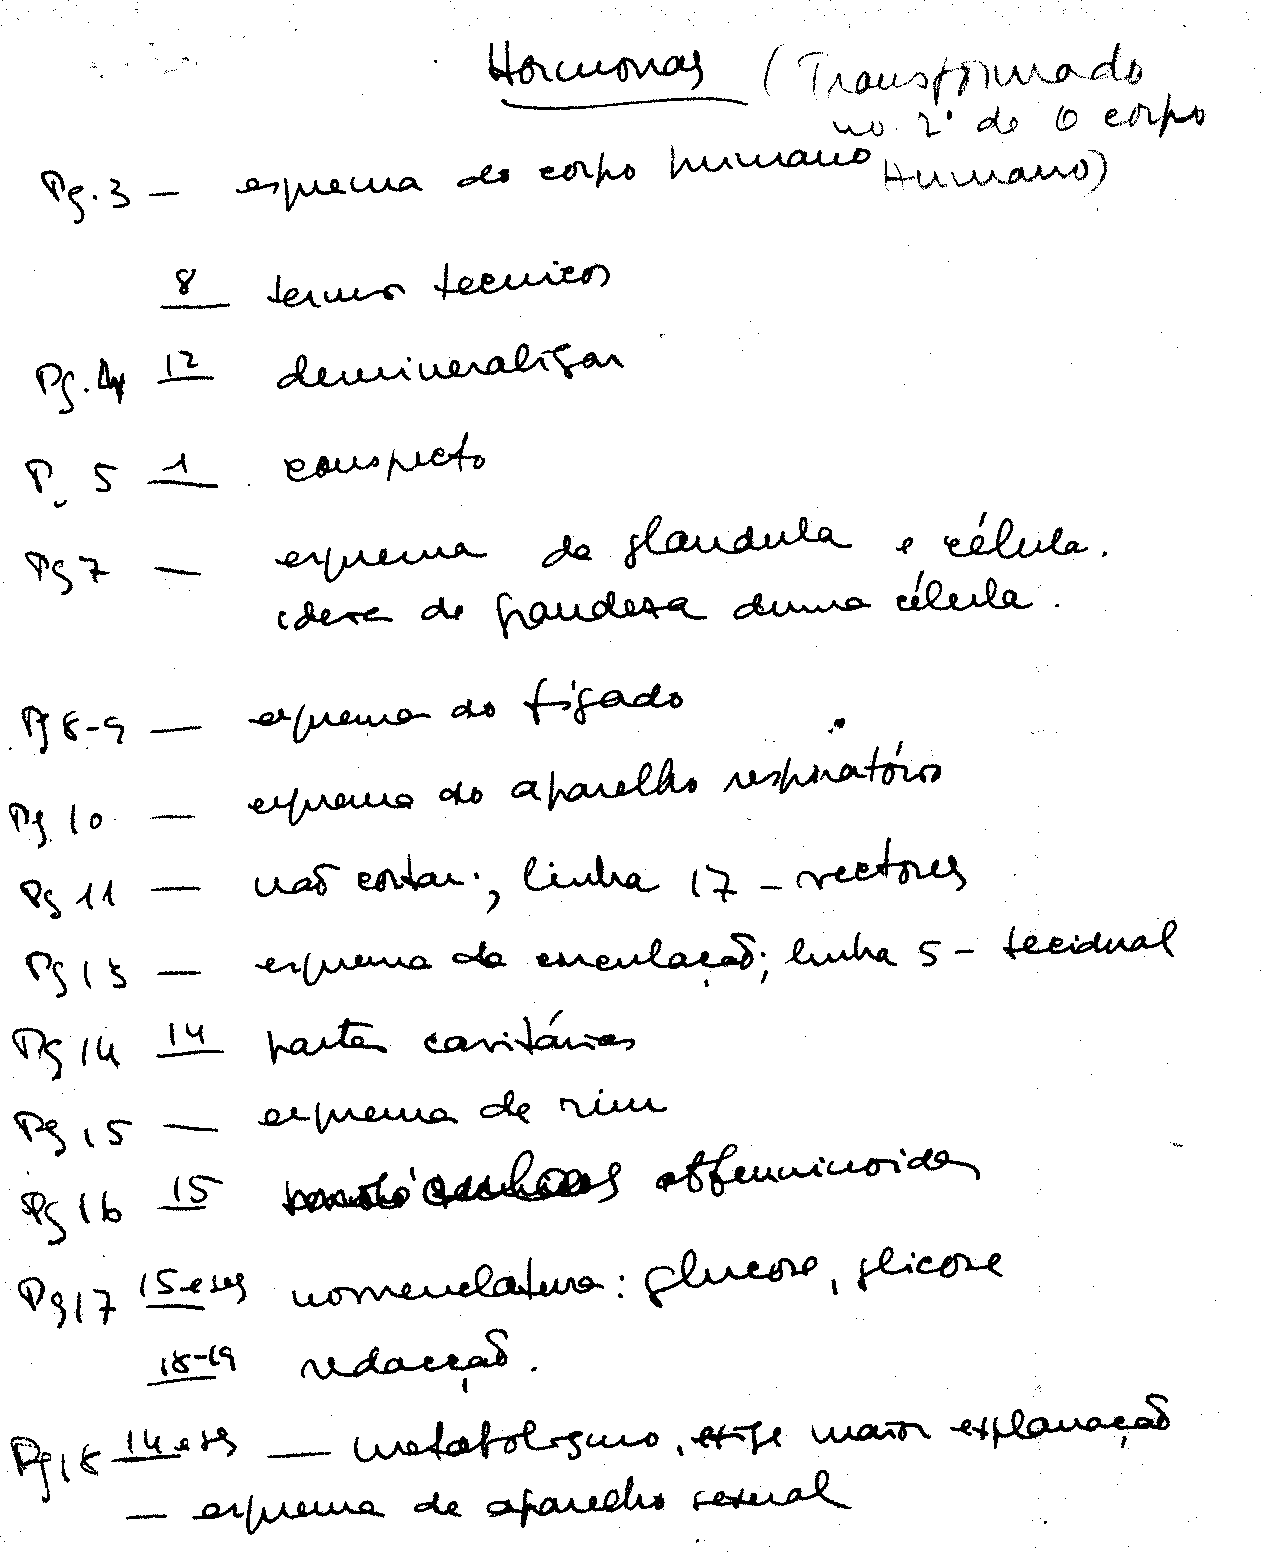 Hormonas (Transformado
no 2º do O corpo
Humano)
Pg. 3 — esquema do corpo humano
8 termos tecnicos
Pg. 4 12 demineralizar
P. 5 1 conspecto
Pg 7 — esquema da glandula e célula.
ideia de grandeza duma célula.
Pg 8-9 — esquema do fígado
Pg 10 — esquema do aparelho respiratório
Pg 11 — não cortar.; linha 17 - vectores
Pg 13 — esquema da circulação; linha 5 - tecidual
Pg 14 14 partes cavitárias
Pg 15 — esquema de rim
Pg 16 15
Pg 17 15 e segs nomenclatura: glucose, glicose
18-19 redacção.
Pg 18 14 e segs — metabolismo, exige maior explanação
— esquema de aparelho sexual